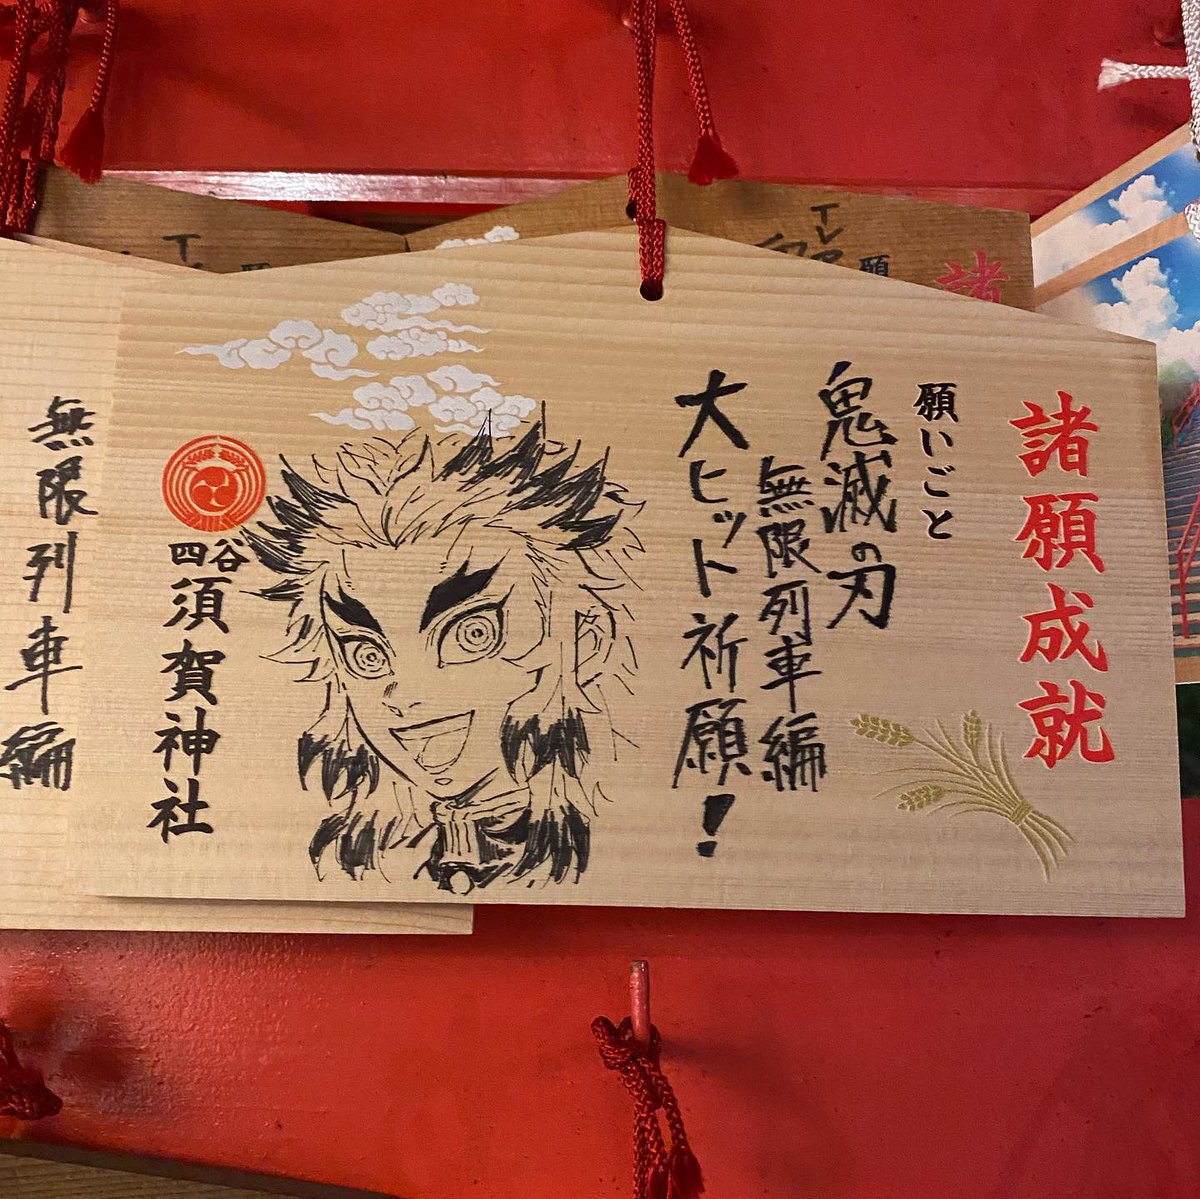 諸願成就
願いごと
鬼滅の刃
無限列車編
大ヒット祈願！
四谷
須賀神社
無限列車編
諸
願